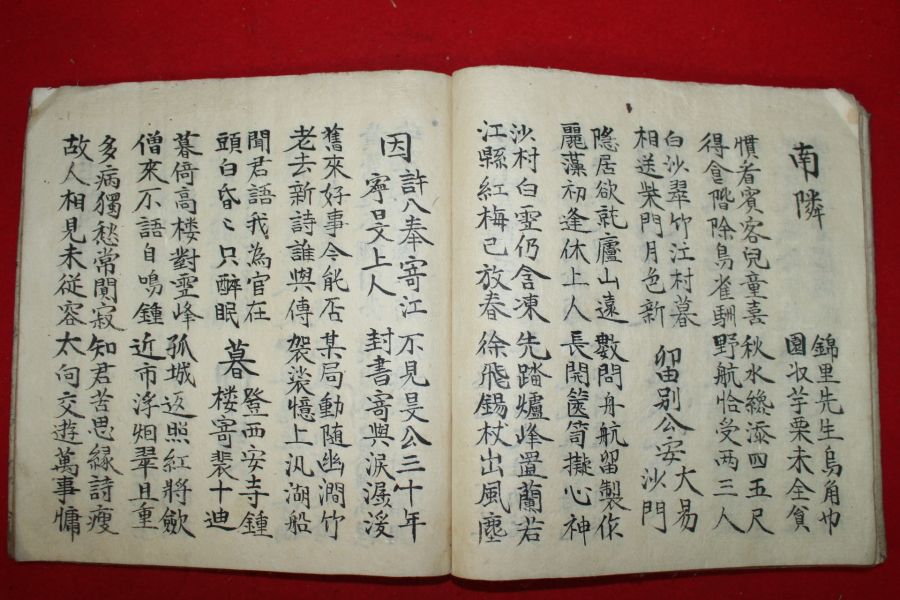 南隣
錦里先生烏角巾
園収芋栗未全貧
慣看賓客兒童喜
得食階除鳥雀馴
秋水纔添四五尺
野航恰受两三人
白沙翠竹江村暮
相送柴門月色新
留别公安大易
沙門
隱居欲就廬山遠
麗藻初逢休上人
數問舟航留製作
長開篋笥擬心神
沙村白雪仍含凍
江縣紅梅已放春
先踏爐峰置蘭若
徐飛錫杖出風塵
因許八奉寄江
寧旻上人
不見旻公三十年
封書寄與淚潺湲
舊來好事今能否
老去新詩誰與傳
某局動随幽澗竹
袈裟憶上汎湖船
聞君語我為官在
頭白昏々只醉眠
暮登西安寺鐘
楼寄裴十迪
暮倚高楼對雪峰
僧來不語自鳴鐘
孤城返照紅將歛
近市浮烟翠且重
多病獨愁常闃寂
故人相見未従容
知君苦思緣詩瘦
太向交遊萬事慵